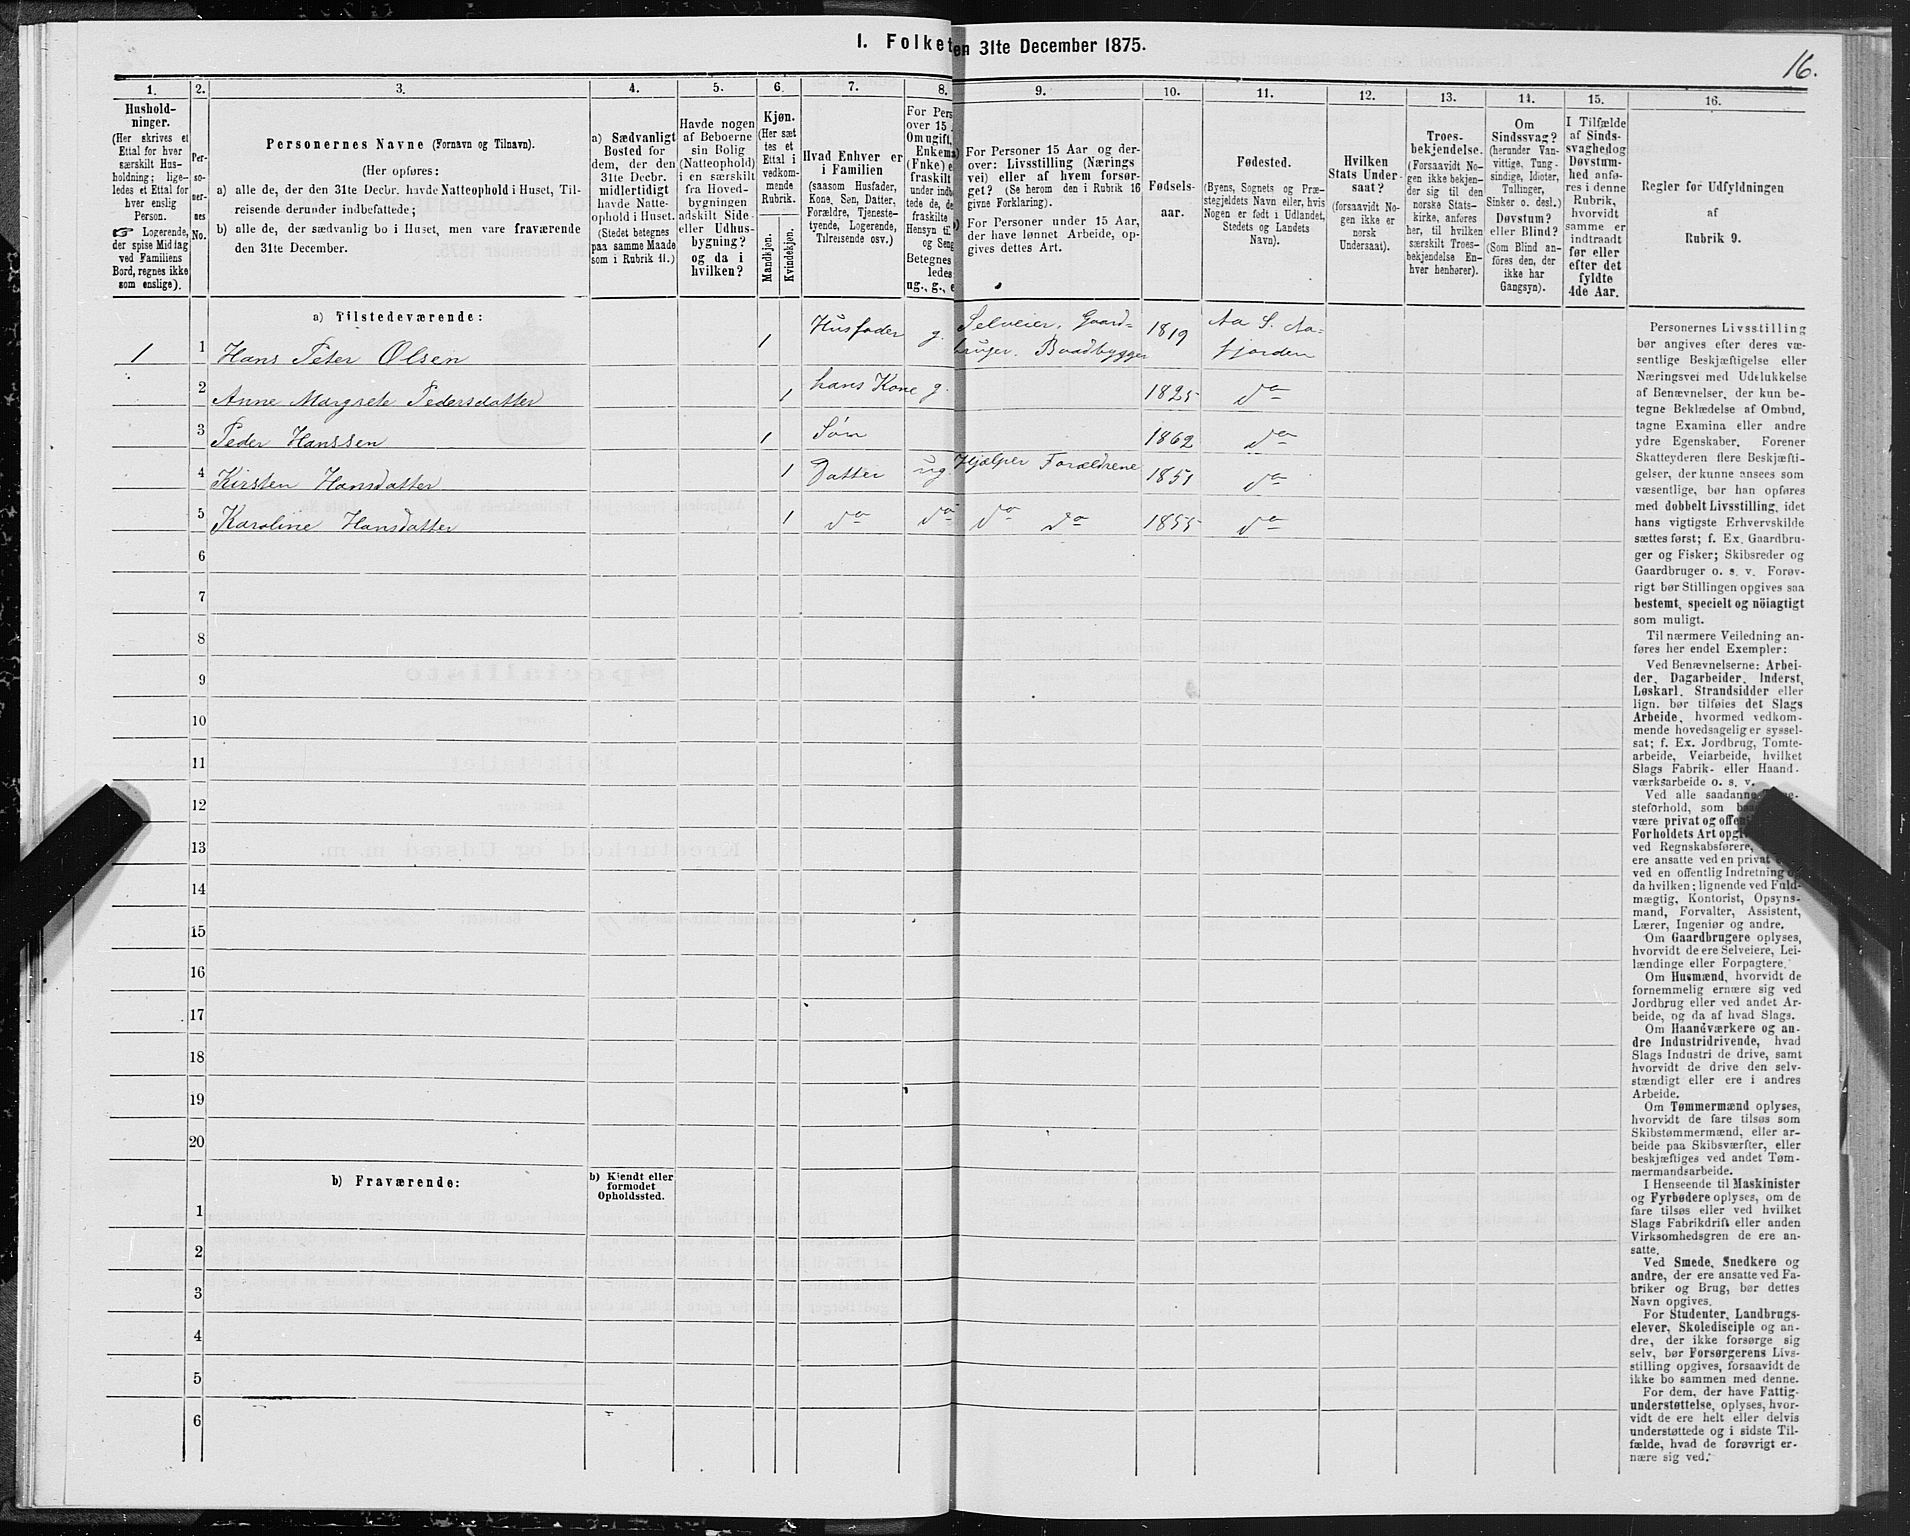 I. Folket en 31te December 1875.
16.
1. 2. 3. 4. 5. 6. 7. 8. 9. 10. 11. 12. 13. 14. 15. 16.
Hushold-
ninger.
(Her skrives et
Ettal for hver
særskilt Hus-
holdning; lige-
ledes et Ettal for
hver enslig
Person.
☞ Logerende,
der spise Middag
ved Familiens
Bord, regnes ikke
som enslige).
Per-
so-
ner-
nes
No.
Personernes Navne (Fornavn og Tilnavn).
(Her opføres:
a) alle de, der den 31te Decbr. havde Natteophold i Huset, Til-
reisende derunder indbefattede;
b) alle de, der sædvanlig bo i Huset, men vare fraværende
den 31te December.
a) Sædvanligt
Bosted for
dem, der den
31te Decbr.
midlertidigt
havde Natte-
ophold i Huset.
(Stedet betegnes
paa samme Maade
som i Rubrik 11.)
Havde nogen
af Beboerne
sin Bolig
(Natteophold)
i en særskilt
fra Hoved-
bygningen
adskilt Side-
eller Udhus-
bygning?
og da i
hvilken?
Kjøn.
(Her sæt
tes et
Ettal i
vedkom-
mende
Rubrik.
Mandkjøn.
Kvindekjøn.
Hvad Enhver er
i Familien
(saasom Husfader,
Kone, Søn, Datter,
Forældre, Tjeneste-
tyende, Logerende,
Tilreisende osv.)
For Pers
over 15
Omugift,
Enkema
(Fnke) e
fraskilt
under indb
tede de, de
fraskilte
Hensyn til
og Seng
Betegnes
ledes
ug., g., e
a) For Personer 15 Aar og der-
over: Livsstilling (Nærings
vei) eller af hvem forsør-
get? (Se herom den i Rubrik 16
givne Forklaring).
b) For Personer under 15 Aar,
der have lønnet Arbeide, op-
gives dettes Art.
Fødsels-
aar.
Fødested.
(Byens, Sognets og Præ-
stegjeldets Navn eller, hvis
Nogen er født i Udlandet,
Stedets og Landets
Navn).
Hvilken
Stats Under
saat?
(forsaavidt No-
gen ikke er
norsk
Undersaat).
Troes-
bekjendelse.
(Forsaavidt No-
gen ikke bekjen-
der sig til den
norske Stats-
kirke, anføres
her, til hvilken
særskilt Troes-
bekjendelse En-
hver henhører).
Om
Sindssvag?
(herunder Van-
vittige, Tung-
sindige, Idioter,
Tullinger,
Sinker o. desl.)
Døvstum?
eller Blind?
(Som Blind an-
föres den, der
ikke har
Gangsyn).
I Tilfælde
af Sinds-
svaghed og
Døvstum-
hed anfø-
res i denne
Rubrik,
hvorvidt
samme er
indtraadt
før eller
efter det
fyldte
4de Aar.
Regler før Udfyldningen
af
Rubrik 9.
a) Tilstedeværende:
1 1 Hans Peter Olsen 1 Husfader g. Selveier, Gaard-
bruger. Baadbygger 1819 Aa S. Aa-
fjorden
2 Anne Margrete Pedersdatter 1 hans Kone g. 1825 do
3 Peder Hanssen 1 Søn 1862 do
4 Kirsten Hansdatter 1 Datter ug. Hjælper Forældrene 1851 do
5 Karoline Hansdatter 1 do do do do 1855 do
6
7
8
9
10
11
12
13
14
15
16
17
18
19
20
b) Fraværende:
b) Kjendt eller
formodet
Opholdssted.
1
2
3
4
5
6
Personernes Livsstilling
bør angives efter deres væ-
sentlige Beskjæftigelse eller
Næringsvei med Udelukkelse
af Benævnelser, der kun be-
tegne Beklædelse af Ombud,
tagne Examina eller andre
ydre Egenskaber. Forener
Skatteyderen flere Beskjæfti-
gelser, der kunne ansees som
væsentlige, bør han opføres
med dobbelt Livsstilling, idet
hans vigtigste Erhvervskilde
sættes først; f. Ex. Gaardbru-
ger og Fisker; Skibsreder og
Gaardbruger o. s. v. Forøv-
rigt bør Stillingen opgives saa
bestemt, specielt og nöiagtigt
som muligt.
Til nærmere Veiledning an-
føres her endel Exempler:
Ved Benævnelserne: Arbei-
der, Dagarbeider, Inderst,
Løskarl, Strandsidder eller
lign. bør tilføies det Slags
Arbeide, hvormed vedkom-
mende hovedsagelig er syssel-
sat; f. Ex. Jordbrug, Tomte-
arbeide, Veiarbeide, hvilket
Slags Fabrik- eller Haand-
værksarbeide o. s. v.
Ved alle saadanne
steforhold, som
være privat og offe
Forholdets Art opg
ved Regnskabsførere,
ere ansatte ved en privat
ved en offentlig Indretning
da hvilken; lignende ved Fuld-
mægtig, Kontorist, Opsyns-
mand, Forvalter, Assistent,
Lærer, Ingeniør og andre.
Om Gaardbrugere oplyses,
hvorvidt de ere Selveiere, Lei-
lændinge eller Forpagtere.
Om Husmænd, hvorvidt de
fornemmelig ernære sig ved
Jordbrug eller ved andet Ar-
beide, og da af hvad Slags.
Om Haandværkere og an-
dre Industridrivende, hvad
Slags Industri de drive, samt
hvorvidt de drive den selv-
stændigt eller ere i andres
Arbeide.
Om Tømmermænd oplyses,
hvorvidt de fare tilsøs som
Skibstømmermænd, eller ar-
beide paa Skibsværfter, eller
beskjæftiges ved andet Tøm-
mermandsarbeide.
I Henseende til Maskinister
og Fyrbødere oplyses, om de
fare tilsøs eller ved hvilket
Slags Fabrikdrift eller anden
Virksomhedsgren de ere an-
satte.
Ved Smede, Snedkere og
andre, der ere ansatte ved Fa-
briker og Brug, bør dettes
Navn opgives.
For Studenter, Landbrugs-
elever, Skoledisciple og an-
dre, der ikke forsørge sig
selv, bør Forsørgerens Livs-
stilling opgives, forsaavidt de
ikke bo sammen med denne.
For dem, der have Fattig-
understøttelse, oplyses, hvor-
vidt de ere helt eller delvis
understøttede og i sidste Til-
fælde, hvad de forøvrigt er-
nære sig ved.